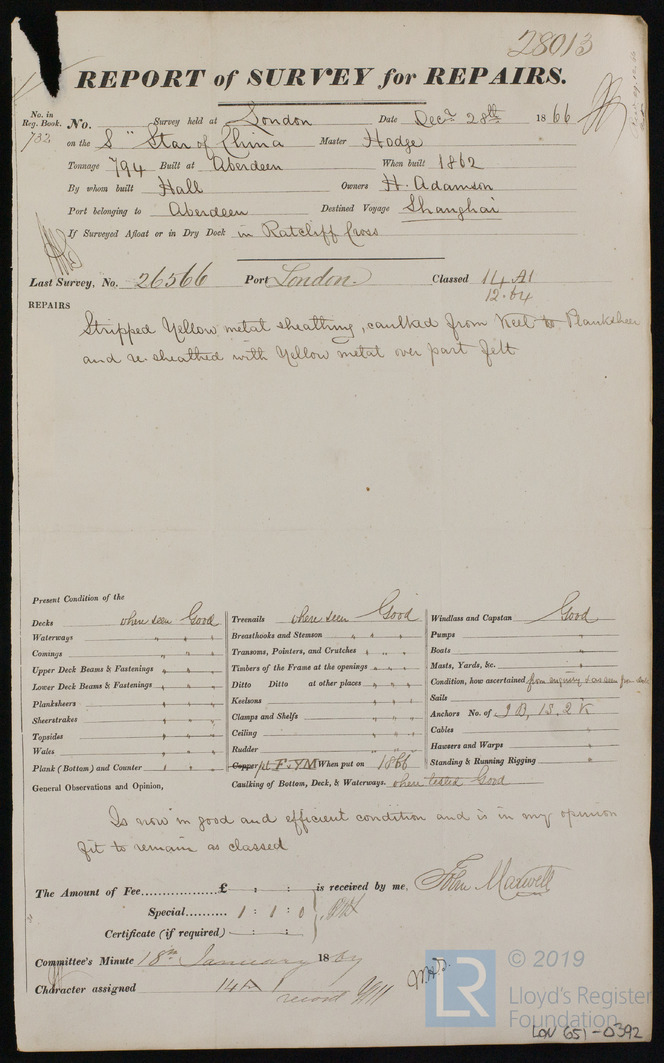 28013
REPORT of SURVEY for REPAIRS.
No. in Reg. Book. No. Survey held at London Date Decr 28th 1866
732 on the S " Star of China Master Hodge
Tonnage 794 Built at Aberdeen When built 1862
By whom built Hall Owners H. Adamson
Port belonging to Aberdeen Destined Voyage Shanghai
If Surveyed Afloat or in Dry Dock in Ratcliff Cross
Last Survey, No. 26566 Port London. Classed 14 A1
12.64
REPAIRS
Stripped Yellow metal sheathing, caulked from Keel to Planksheer
and re sheathed with Yellow metal over part felt
Present Condition of the
Decks where seen Good
Waterways " " "
Comings " " "
Upper Deck Beams & Fastenings " " "
Lower Deck Beams & Fastenings " " "
Planksheers " " "
Sheerstrakes " " "
Topsides " " "
Wales " " "
Plank (Bottom) and Counter " " "
Treenails where seen Good
Breasthooks and Stemson " " "
Transoms, Pointers, and Crutches " " "
Timbers of the Frame at the openings " " "
Ditto Ditto at other places " " "
Keelsons " " "
Clamps and Shelfs " " "
Ceiling " " "
Rudder " "
Copper pt F & YM When put on 1866
Caulking of Bottom, Deck, & Waterways. where tested Good
Windlass and Capstan Good
Pumps "
Boats "
Masts, Yards, &c. "
Condition, how ascertained from enquiry & as seen from deck
Sails "
Anchors No. of 3B, 1S, 2K
Cables "
Hawsers and Warps "
Standing & Running Rigging "
General Observations and Opinion,
Is now in good and efficient condition and is in my opinion
fit to remain as classed
The Amount of Fee................£ : : is received by me, John Maxwell
Special.......... 1 : 1 : 0
Certificate (if required) : :
Committee's Minute 18th January 1867
Character assigned 14 A 1
record YM
© 2019
LR
Lloyd's Register
Foundation
LON 651-0392